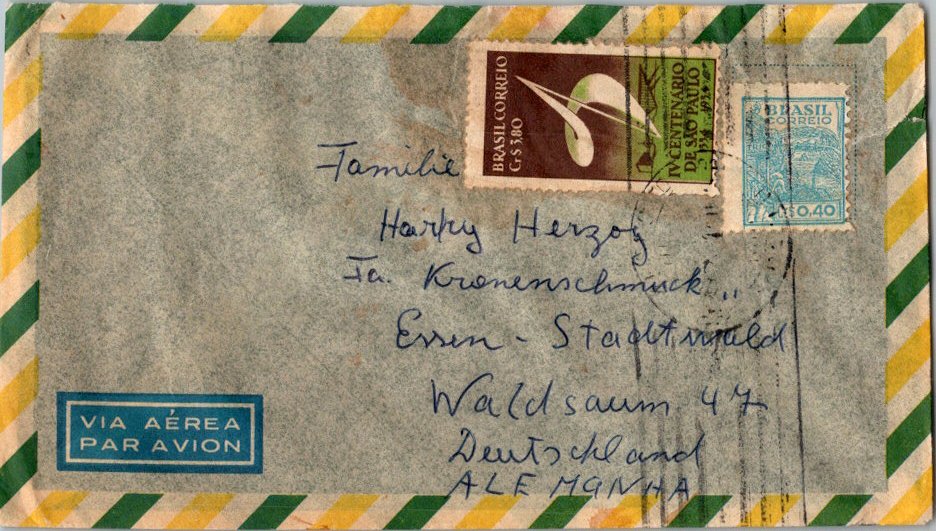 BRASIL CORREIO
Cr$ 3,80
IV CENTENÁRIO
DE SÃO PAULO
1554 1954
BRASIL
CORREIO
0,40
Familie
Harry Herzog
Fa. Kronenschmuck"
Essen - Stadtwald
Waldsaum 47
Deutschland
ALEMANHA
VIA AÉREA
PAR AVION